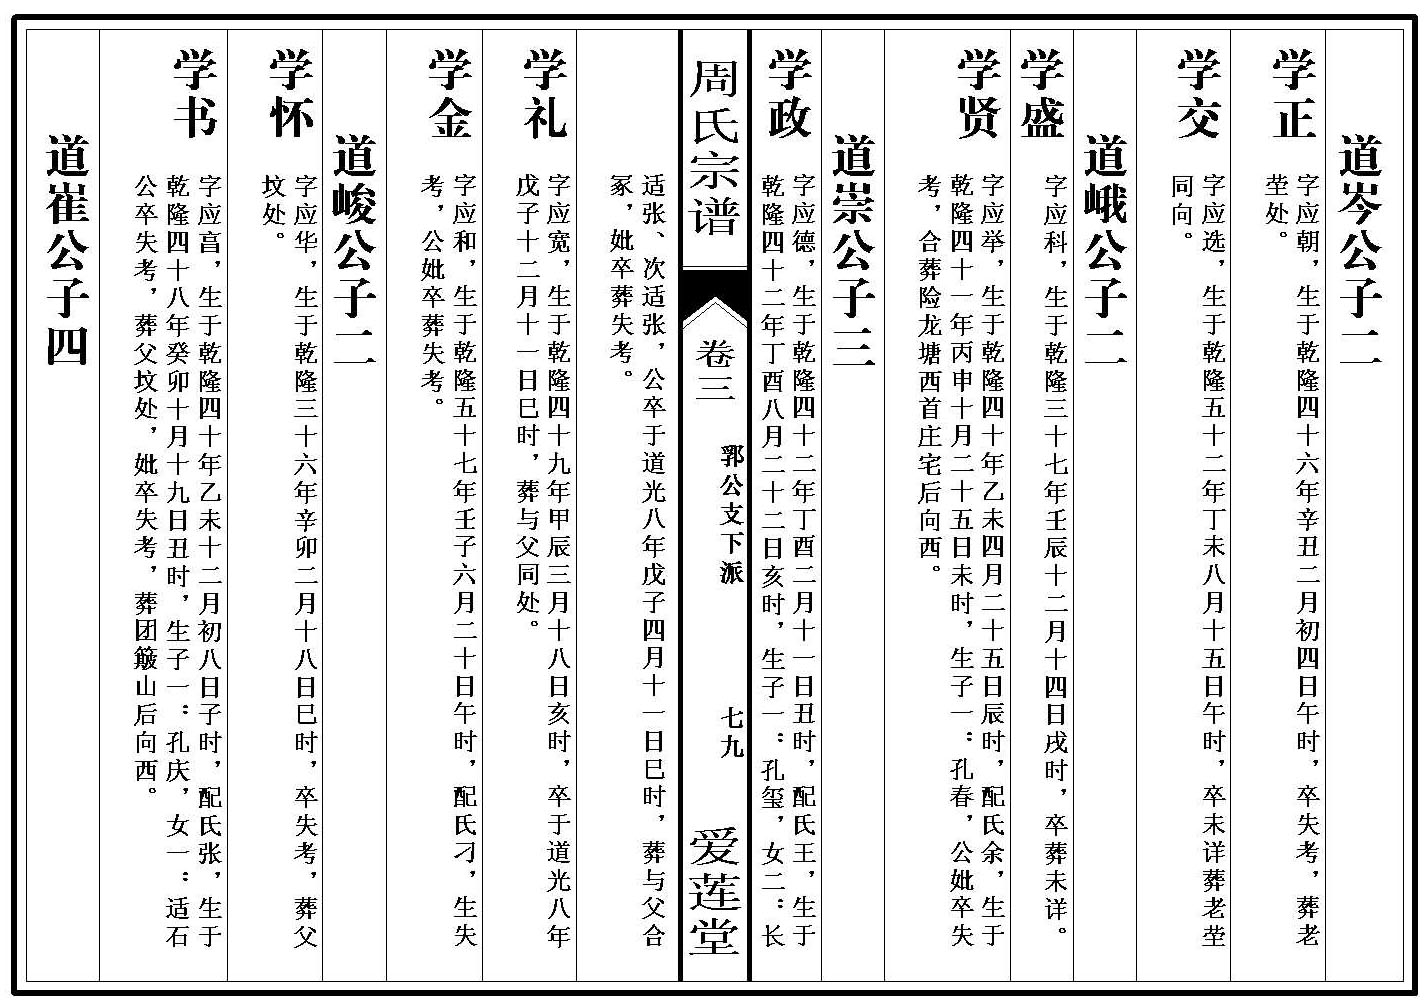 道岑公子二
学正
字应朝，生于乾隆四十六年辛丑二月初四日午时，卒失考，葬老
茔处。
学交
字应选，生于乾隆五十二年丁未八月十五日午时，卒未详葬老茔
同向。
道峨公子二
学盛
字应科，生于乾隆三十七年壬辰十二月十四日戌时，卒葬未详。
学贤
字应举，生于乾隆四十年乙未四月二十五日辰时，配氏余，生于
乾隆四十一年丙申十月二十五日未时，生子一：孔春，公妣卒失
考，合葬险龙塘西首庄宅后向西。
道崇公子三
学政
字应德，生于乾隆四十二年丁酉二月十一日丑时，配氏王，生于
乾隆四十二年丁酉八月二十二日亥时，生子一：孔玺，女二：长
周氏宗谱
卷三
郭公支下派
七九
爱莲堂
适张、次适张，公卒于道光八年戊子四月十一日巳时，葬与父合
冢，妣卒葬失考。
学礼
字应宽，生于乾隆四十九年甲辰三月十八日亥时，卒于道光八年
戊子十二月十一日巳时，葬与父同处。
学金
字应和，生于乾隆五十七年壬子六月二十日午时，配氏刁，生失
考，公妣卒葬失考。
道峻公子二
学怀
字应华，生于乾隆三十六年辛卯二月十八日巳时，卒失考，葬父
坟处。
学书
字应亯，生于乾隆四十年乙未十二月初八日子时，配氏张，生于
乾隆四十八年癸卯十月十九日丑时，生子一：孔庆，女一：适石
公卒失考，葬父坟处，妣卒失考，葬团簸山后向西。
道崔公子四